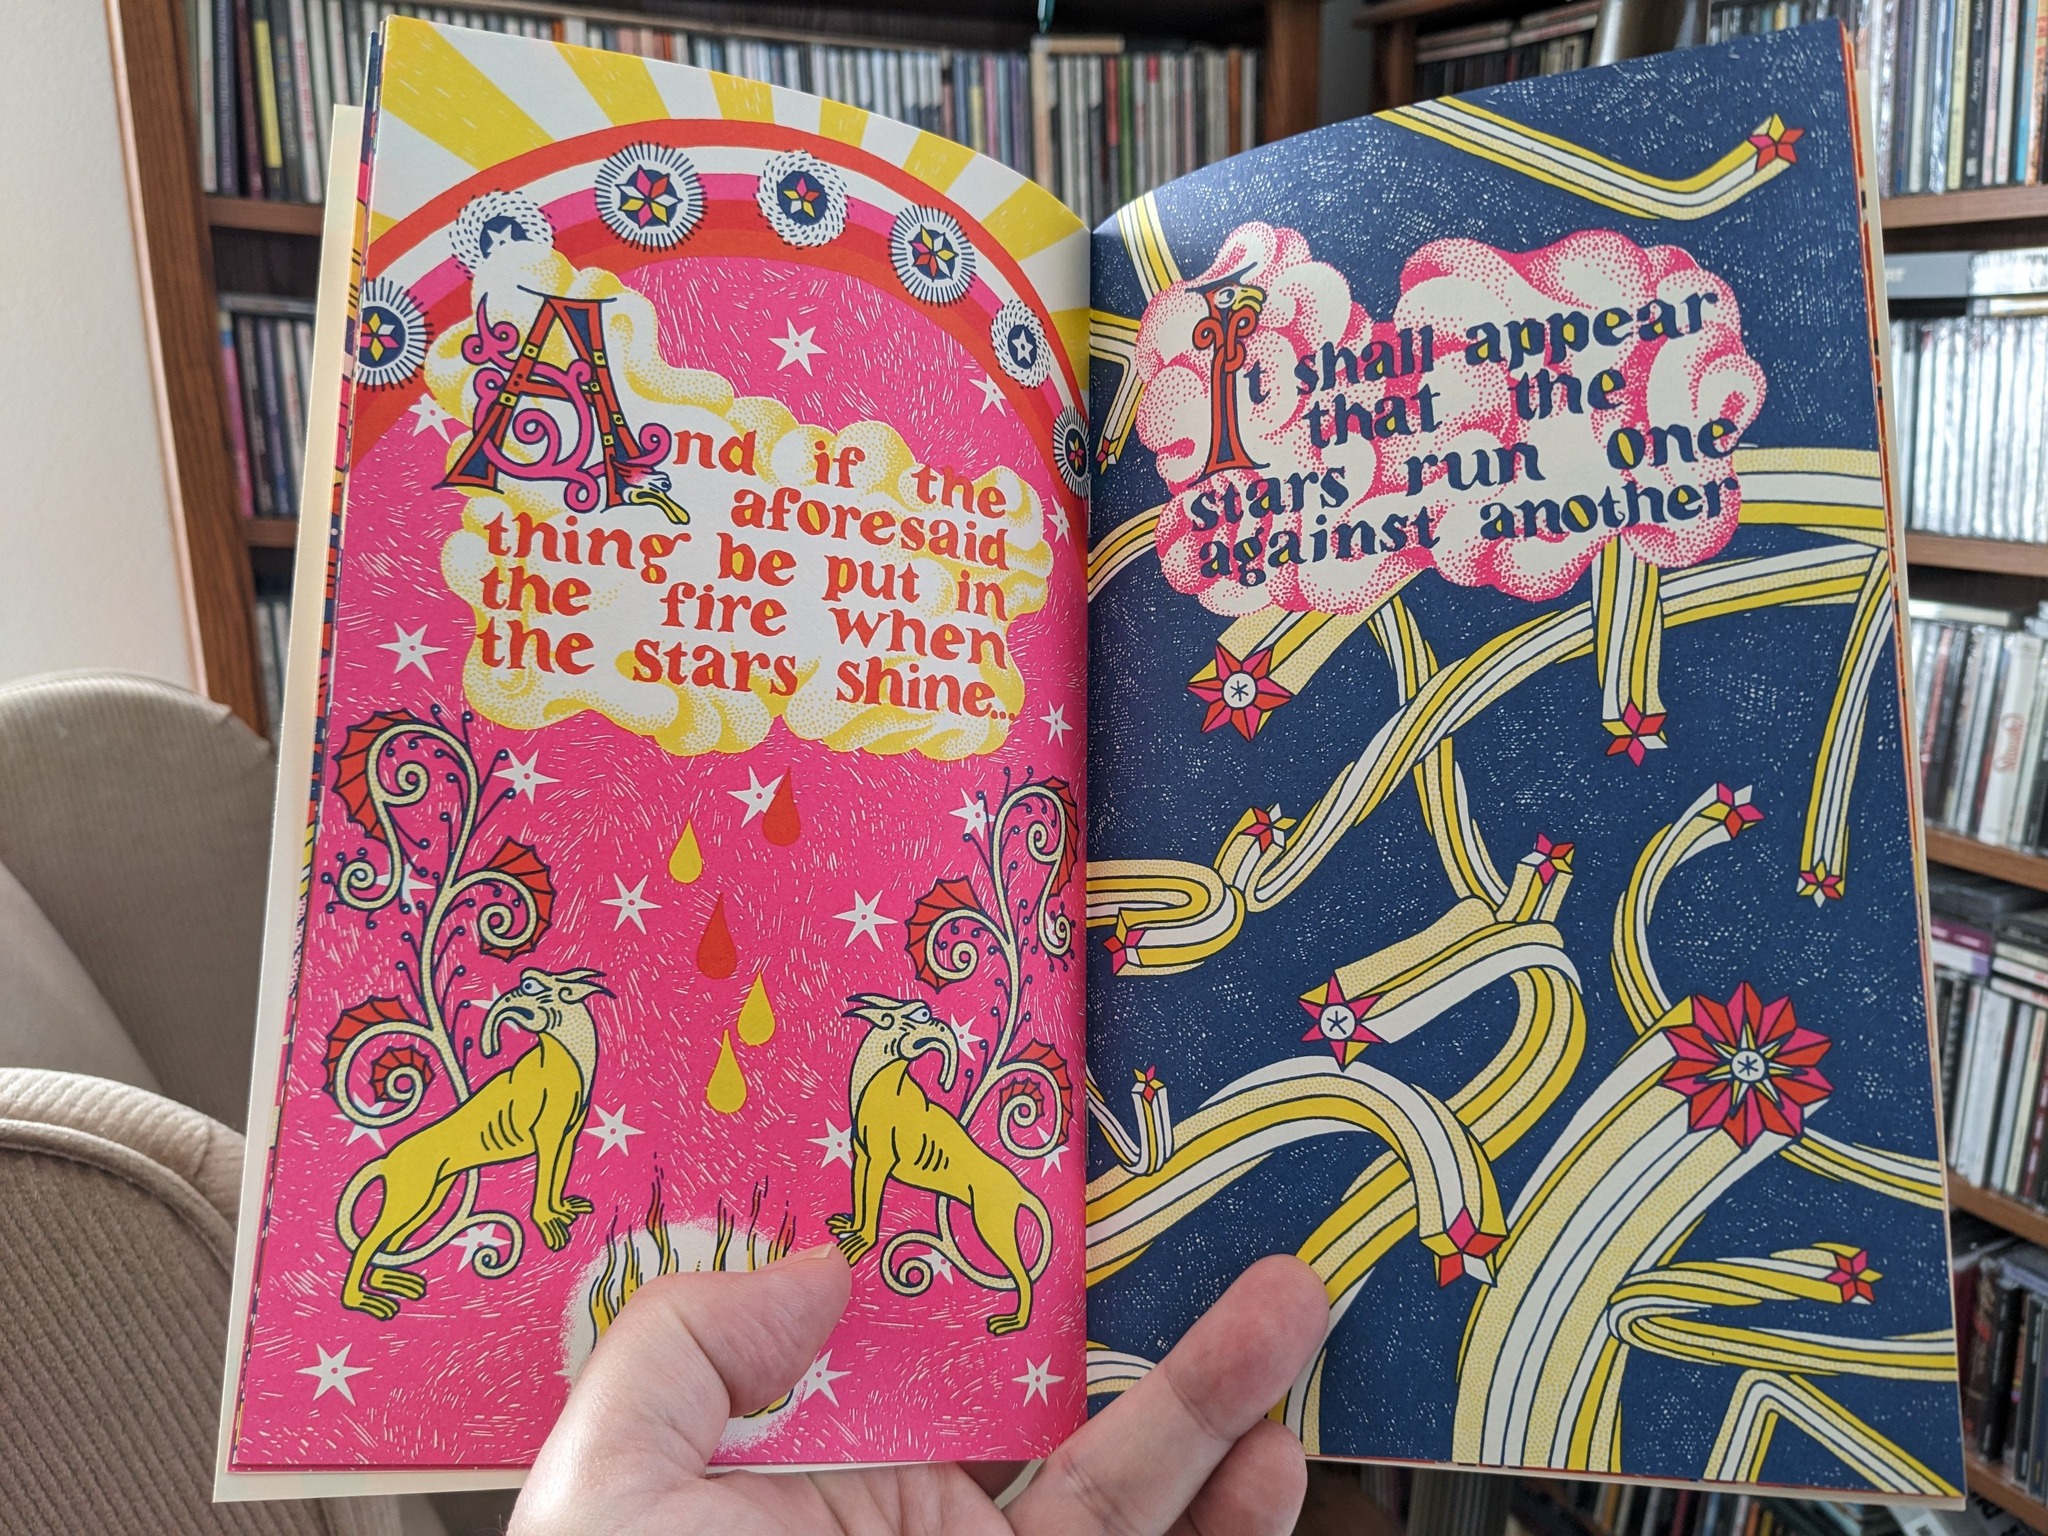 And if the
aforesaid
thing be put in
the fire when
the stars shine...
It shall appear
that the
stars run one
against another